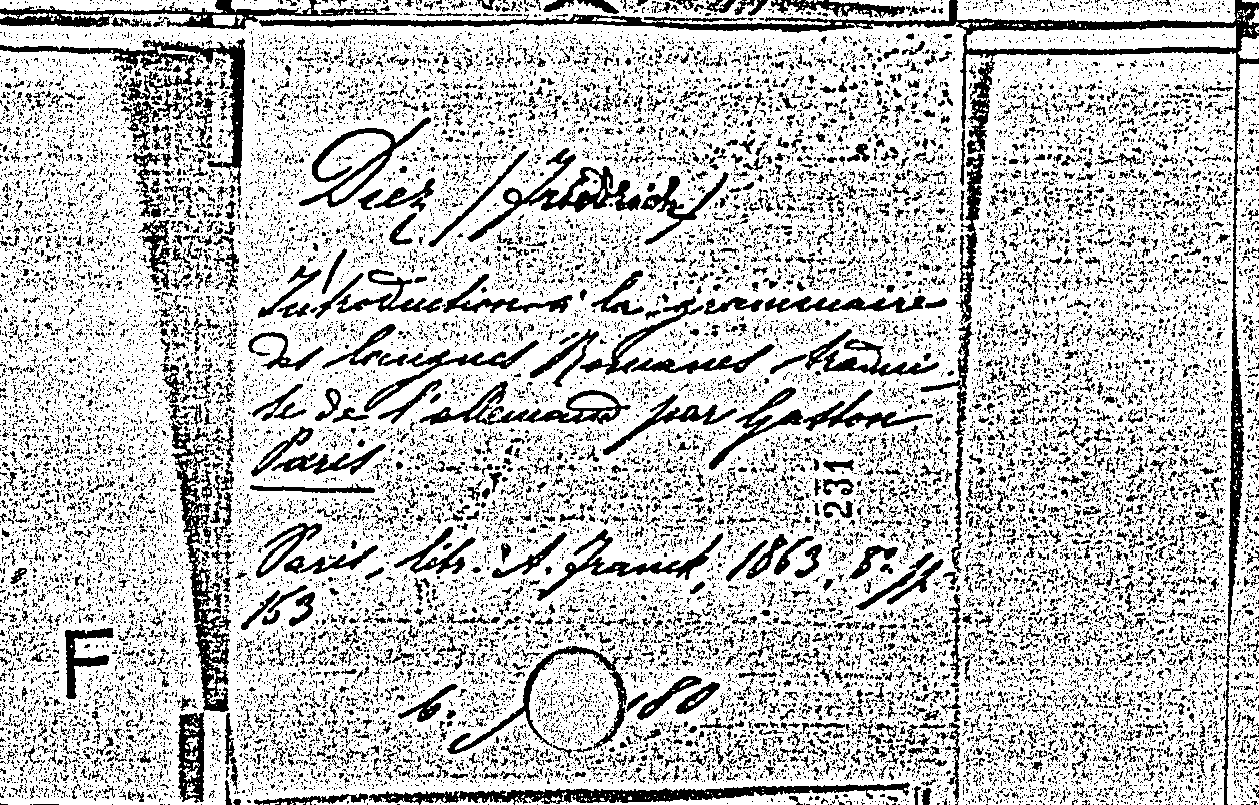 Diez (Friedrich)
Introduction à la grammaire
des langues Romanes, tradui-
te de l'allemand par Gaston
Paris
231
Paris, libr. A. Franck, 1863, 8º. pp
153
F
6. 180